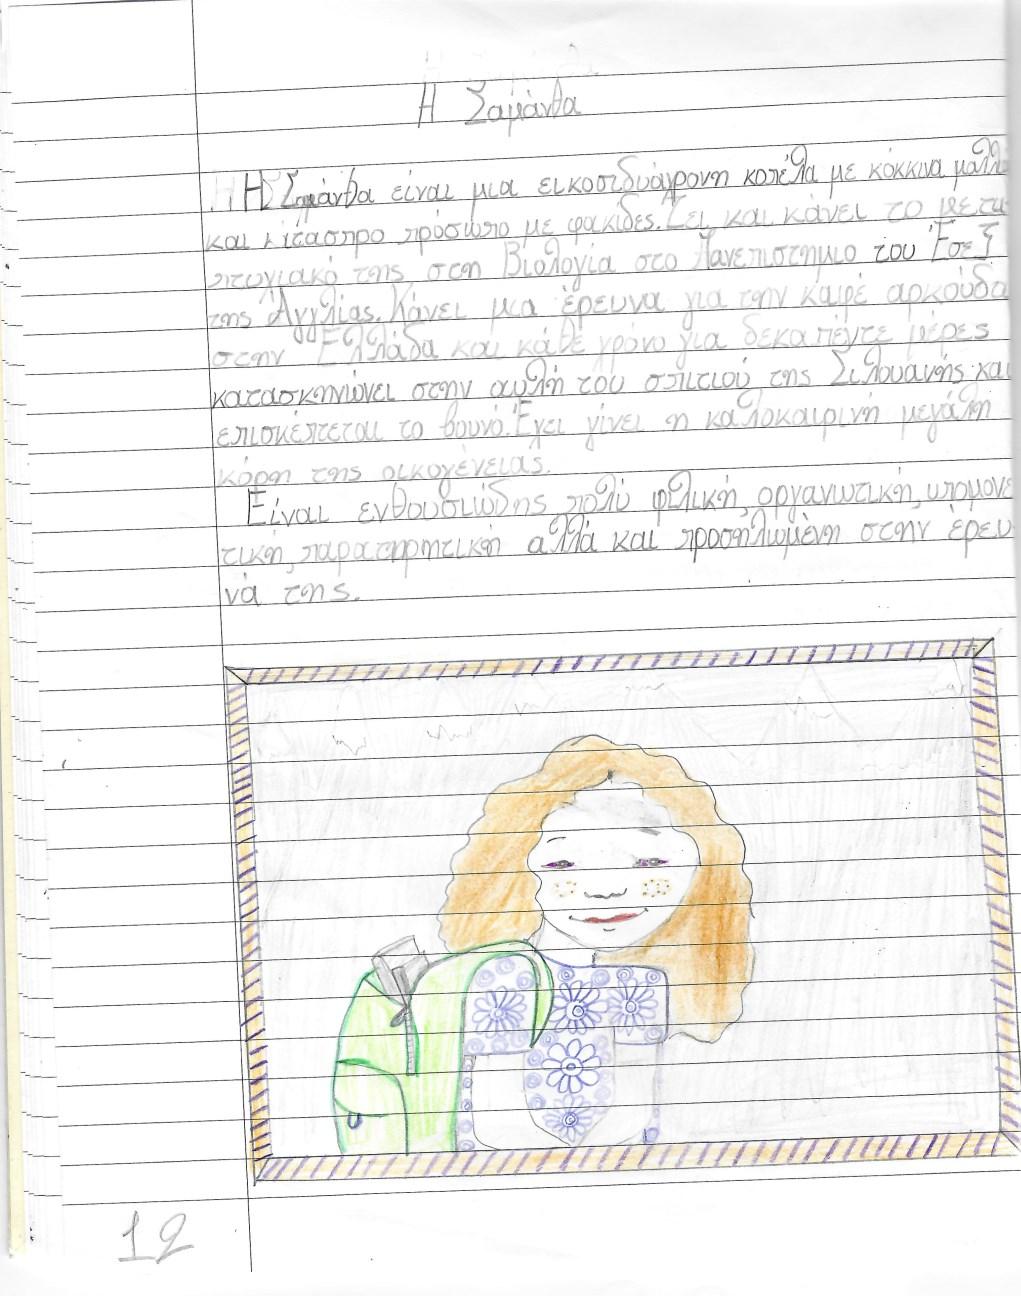 Η Σαμάνθα
Η Σαμάνθα είναι μια εικοσιδυάχρονη κοπέλα με κόκκινα μαλλι
και κάτασπρο πρόσωπο με φακίδες. Ζει και κάνει το μετα
πτωχιακό της στη Βιολογία στο Πανεπιστήμιο του Έσεξ
της Αγγλίας. Κάνει μια έρευνα για την καφέ αρκούδα
στην Ελλάδα και κάθε χρόνο για δεκαπέντε μέρες
κατασκηνώνει στην αυλή του σπιτιού της Σιλουανής και
επισκέπτεται το βουνό. Έχει γίνει η καλοκαιρινή μεγάλη
κόρη της οικογένειας.
Είναι ενθουσιώδης, πολύ φιλική, οργανωτική, υπομονε
τική, παρατηρητική αλλά και προσηλωμένη στην έρευ
νά της.
12